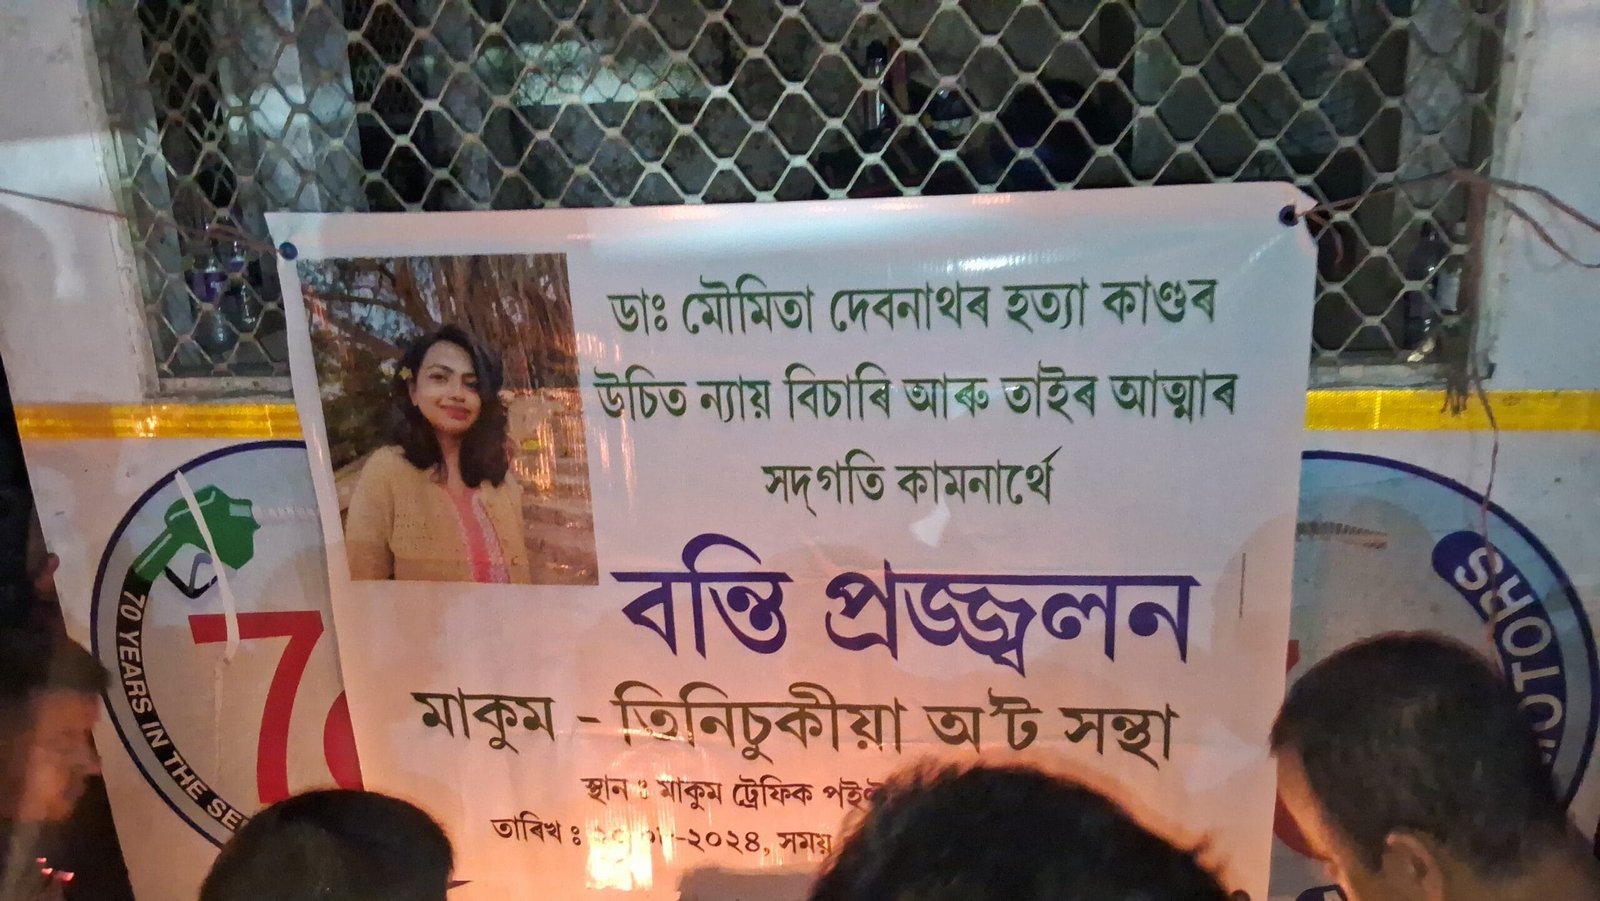 ডাঃ মৌমিতা দেবনাথৰ হত্যা কাণ্ডৰ
উচিত ন্যায় বিচাৰি আৰু তাইৰ আত্মাৰ
সদ্‌গতি কামনাৰ্থে
বন্তি প্ৰজ্জ্বলন
মাকুম - তিনিচুকীয়া অ'ট সন্থা
স্থান : মাকুম ট্ৰেফিক
তাৰিখ : -২০২৪, সময়
70 YEARS IN THE